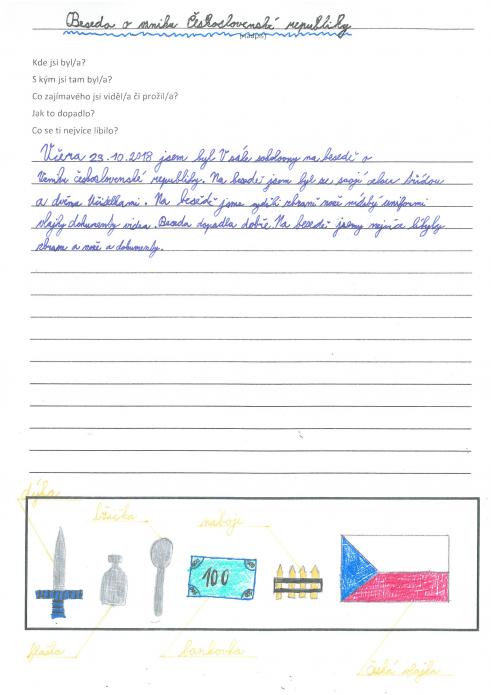 Beseda o vzniku Československé republiky
(nadpis)
Kde jsi byl/a?
S kým jsi tam byl/a?
Co zajímavého jsi viděl/a či prožil/a?
Jak to dopadlo?
Co se ti nejvíce líbilo?
Včera 29.10.2018 jsem byl V sále sokolovny na besedě o
Vzniku československé republiky. Na besedě jsem byl se svojí celou třídou
a dvěma Učitelkami. Na besedě jsme viděli zbraně nože uniformi
vlajky dokumenty videa. Beseda dopadla dobře. Na besedě nejvíce líbyly
zbraně a nože a dokumenty.
dýka
lžička
náboje
100
flaška
bankovka
česká vlajka